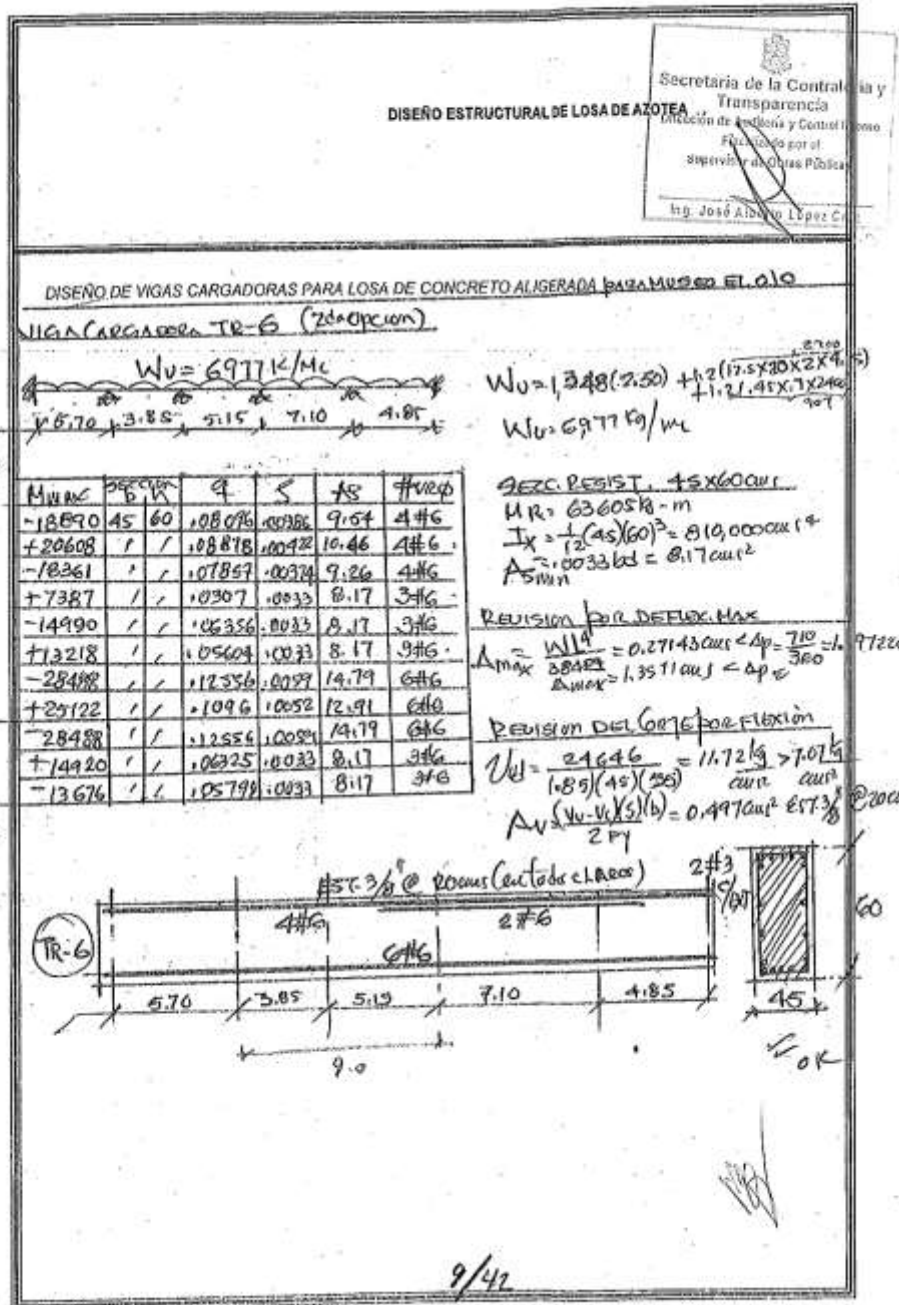 Secretaria de la Contraloria y
Transparencia
Dirección de Auditoría y Control Interno
Fiscalizado por el
Supervisor de Obras Públicas
Ing. José Alberto López
DISEÑO ESTRUCTURAL DE LOSA DE AZOTEA
DISEÑO DE VIGAS CARGADORAS PARA LOSA DE CONCRETO ALIGERADA PARA MUSEO EL OJO
VIGA CARGADORA TR-6 (2da opcion)
Wu= 6977 K/ML
5.70 3.85 5.15 7.10 4.85
2700
Wu=1,348(2.50) +1.2(17.5x20x2x4.
+1.2(.45x.7x2400
907
Wu=6977 Kg/ML
Mmax SECCION b h q S AS #VRS φ
-18890 45 60 .08096 .00386 9.54 4#6
+20608 ′ ′ .08878 .00422 10.46 4#6
-18361 ′ ′ .07857 .00374 9.26 4#6
+7387 ′ ′ .0307 .0033 8.17 3#6
-14990 ′ ′ .06356 .0033 8.17 3#6
+13218 ′ ′ .05604 .0033 8.17 3#6
-28488 ′ ′ .12556 .0059 14.79 6#6
+25122 ′ ′ .1096 .0052 12.91 6#6
-28488 ′ ′ .12556 .0059 14.79 6#6
+14920 ′ ′ .06325 .0033 8.17 3#6
-13676 ′ ′ .05799 .0033 8.17 3#6
SECC. RESIST. 45X60cms
MR= 63605 k-m
Ix = 1/12 (45)(60)³ = 810,000cms⁴
Asmin = .0033bd = 8.17cms²
REVISION POR DEFLEX. MAX
Δmax = Wl⁴/384EI = 0.27143cms < Δp = 710/360 = 1.9722
Δmax = 1.3571cms < Δp
REVISION DEL CORTE POR FLEXIÓN
Vu = 24646/(.85)(45)(55) = 11.72 kg/cms² > 7.07 kg/cms²
Av = (Vu-Vc)(S)(b)/2FY = 0.497cms² EST. 3/8 @20
EST. 3/8" @ 20cms (en todo claros)
4#6
2#6
6#6
2#3
TR-6
60
5.70 3.85 5.15 7.10 4.85
45
9.0
OK
9/42